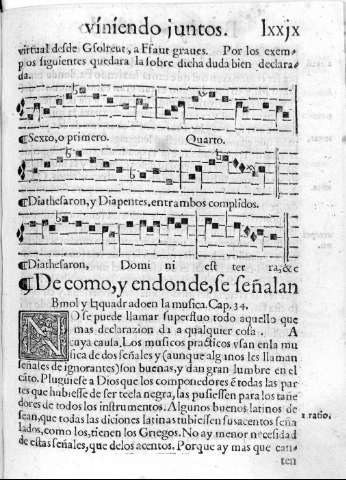 viniendo juntos. lxxjx
virtual desde Gsolreut, a Ffaut graues. Por los exem-
plos siguientes quedara la sobre dicha duda bien declara-
da.
¶Sexto, o primero. Quarto.
¶Diathesaron, y Diapentes, entrambos complidos.
¶Diathesaron, Domi ni est ter ra, &c
¶De como, y endonde, se señalan
Bmol y ♮quadrado en la musica. Cap. 34.
NO se puede llamar superfluo todo aquello que
mas declarazion da a qualquier cosa. A
cuya causa. Los musicos practicos vsan en la mu
sica de dos señales y (aunque algunos les llaman
señales de ignorantes) son buenas, y dan gran lumbre en el
cáto. Pluguiesse a Dios que los componedores é todas las par
tes que hubiesse de ser tecla negra, las pusiessen para los tañe
dores de todos los instrumentos. Algunos buenos latinos de
sean, que todas las diciones latinas tubiessen sus acentos seña
lados, como los tienen los Griegos. No ay menor necesidad
de estas señales, que de los acentos. Porque ay mas que can-
ten
1 ratio.